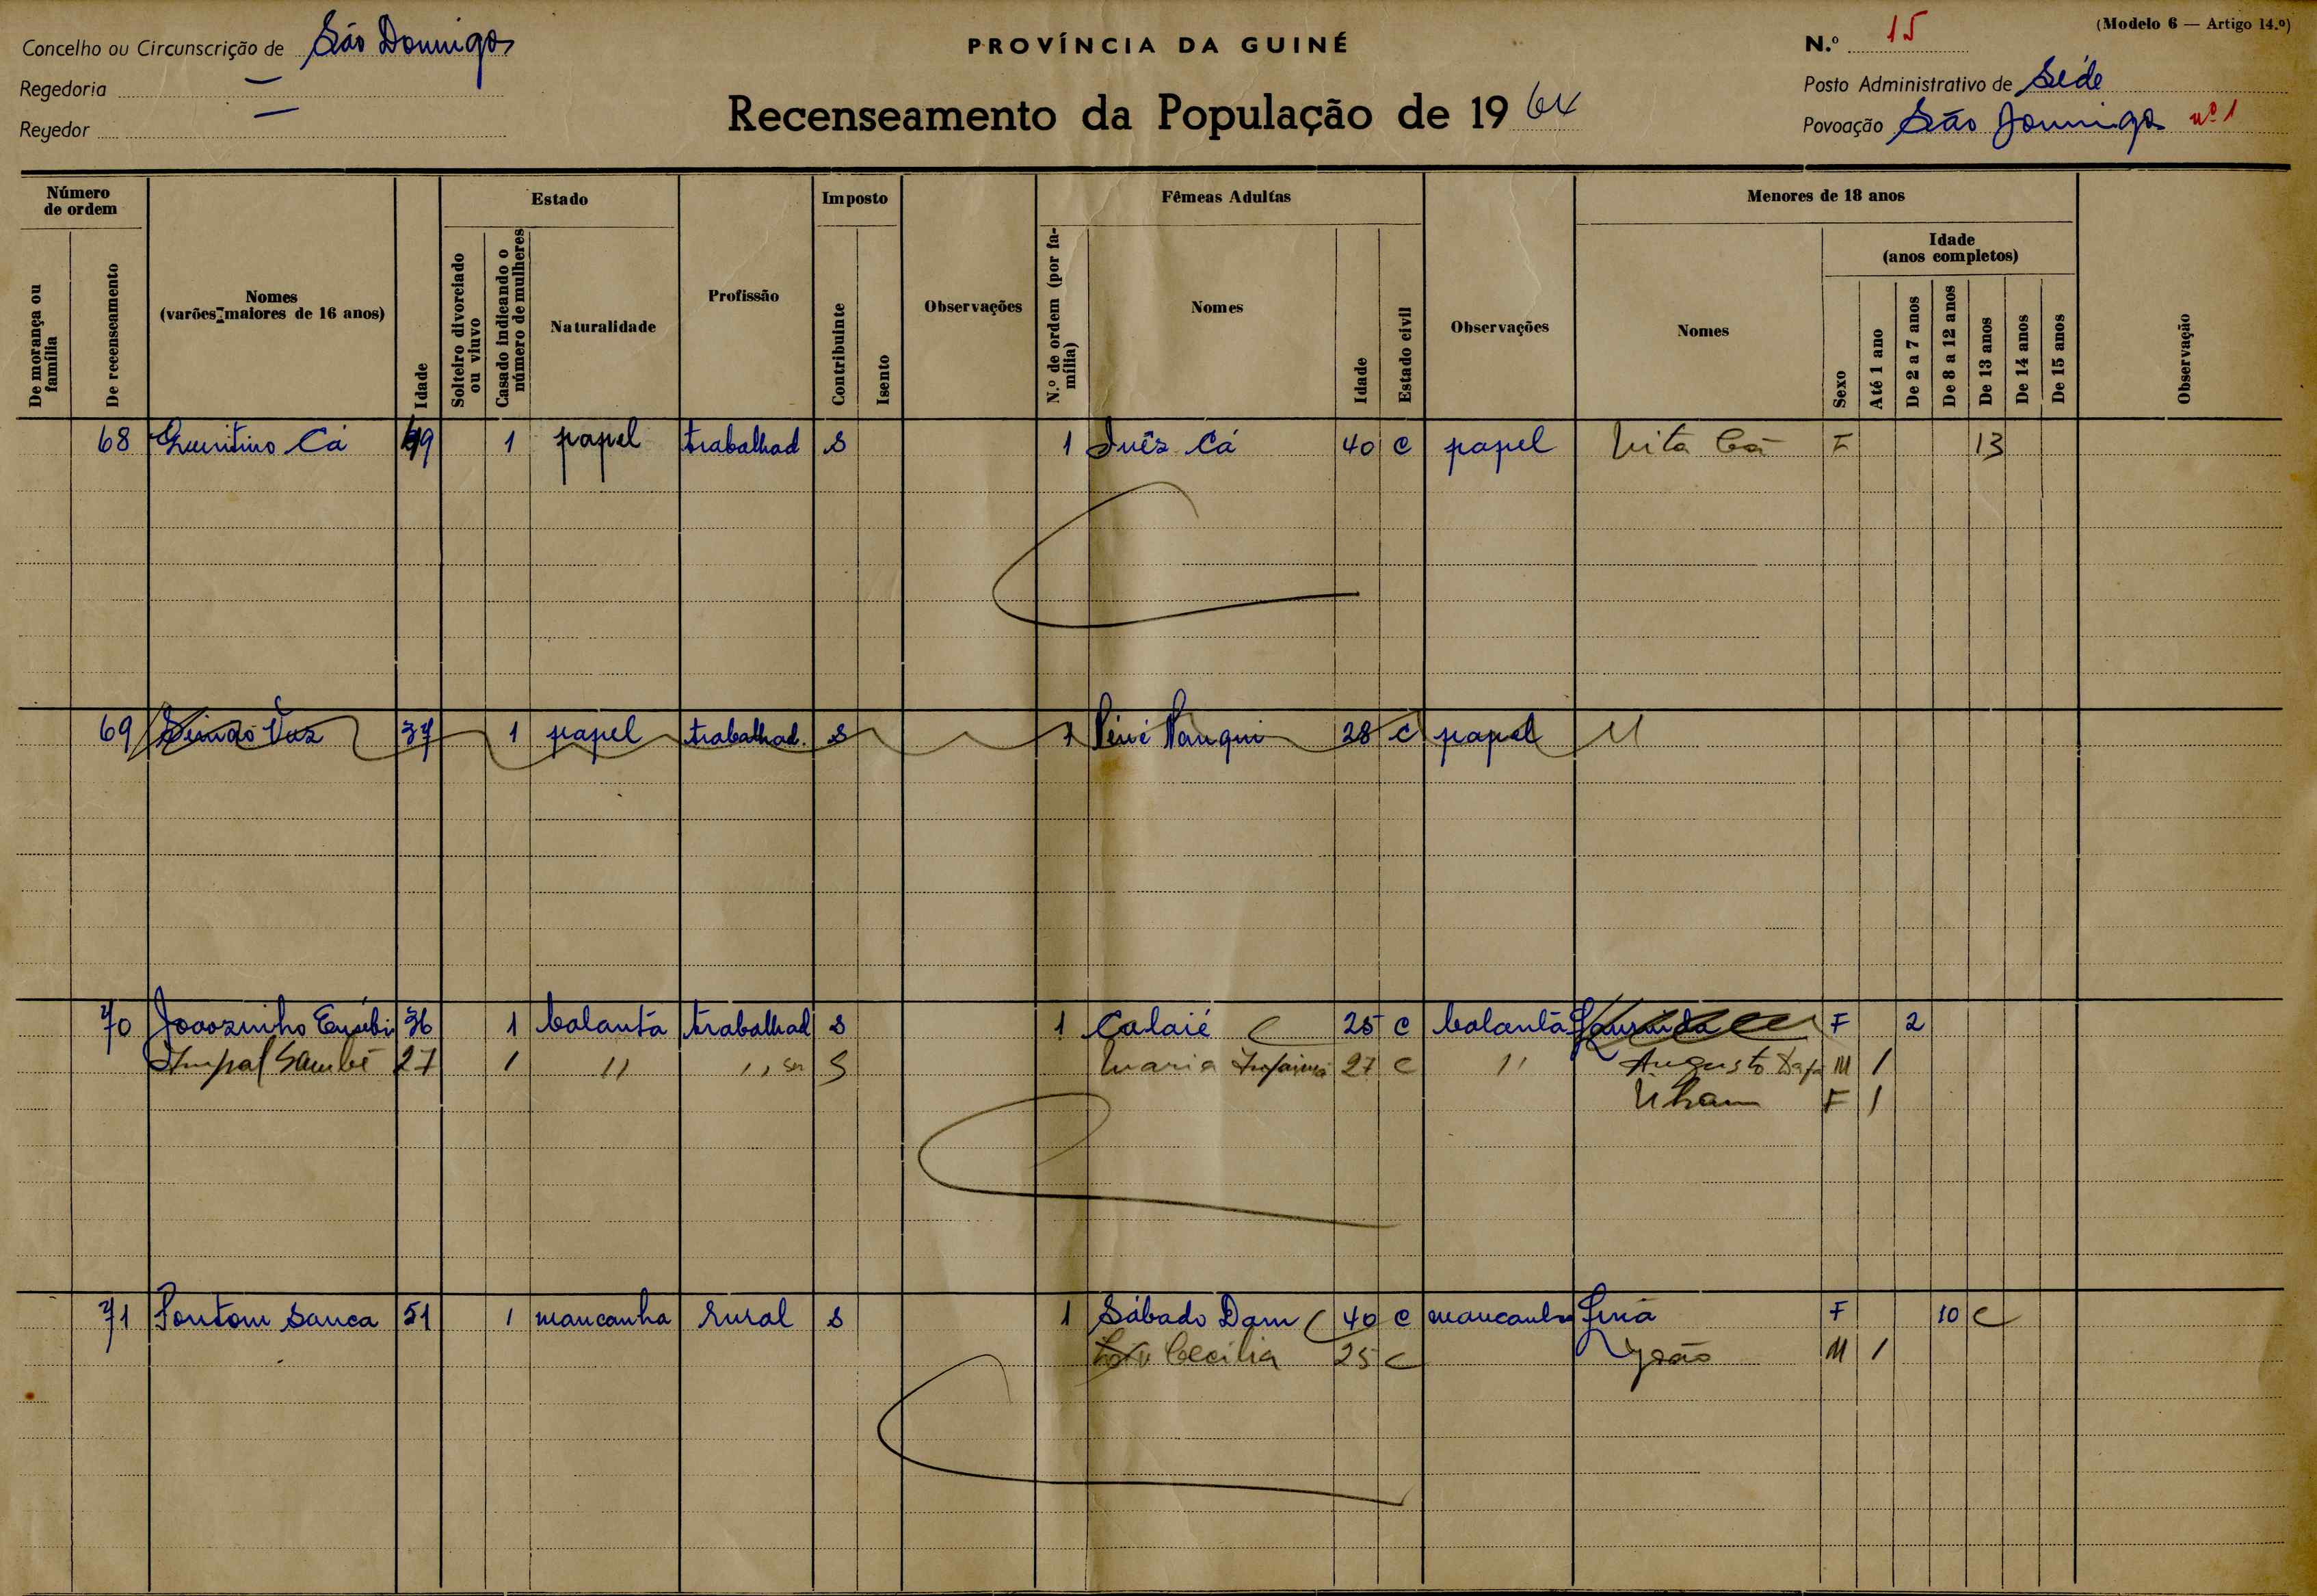 Concelho ou Circunscrição de São Domingos
Regedoria —
Regedor —
PROVÍNCIA DA GUINÉ
Recenseamento da População de 1964
(Modelo 6 — Artigo 14.º)
N.º 15
Posto Administrativo de Séde
Povoação São Domingos nº 1
Número de ordem
De morança ou família
De recenseamento
Nomes (varões maiores de 16 anos)
Idade
Estado
Solteiro divorciado ou viuvo
Casado indicando o número de mulheres
Naturalidade
Profissão
Imposto
Contribuinte
Isento
Observações
Fêmeas Adultas
N.º de ordem (por família)
Nomes
Idade
Estado civil
Observações
Menores de 18 anos
Nomes
Sexo
Idade (anos completos)
Até 1 ano
De 2 a 7 anos
De 8 a 12 anos
De 13 anos
De 14 anos
De 15 anos
Observação
68 Cá 49 1 papel trabalhad S 1 Inês Cá 40 C papel Cá F 13
69 Vaz 37 1 papel trabalhad. S 1 28 C papel
70 Joãozinho Eusébi 36 1 balanta trabalhad S 1 Calaié C 25 C balanta F 2
Sambé 27 1 " " S Maria 27 C " Augusto M 1
F 1
71 Sanca 51 1 mancanha rural S 1 Sábado Dam C 40 C mancanha F 10 C
Cecilia 25 C João M 1